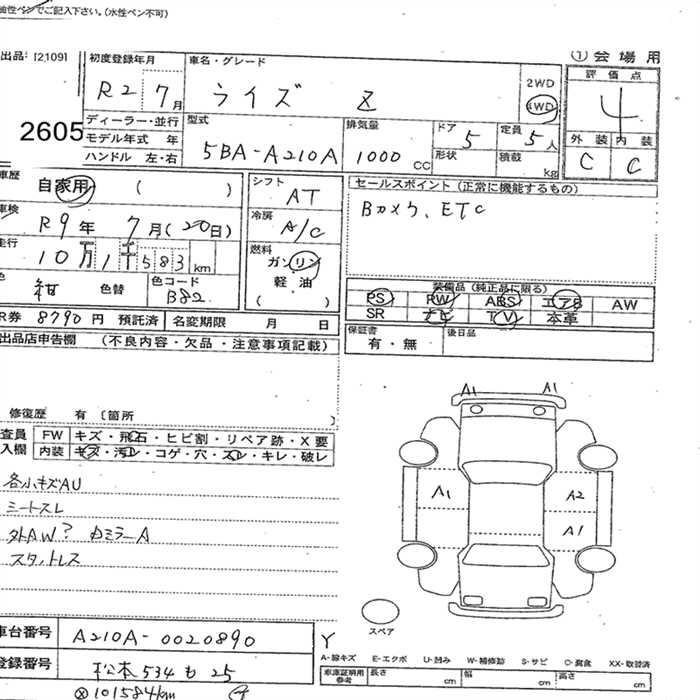 油性ペンでご記入下さい。(水性ペン不可)
出品: [2109]
① 会場用
初度登録年月
車名・グレード
R2 7月
ライズ Z
2WD
4WD
評価点
4
2605
ディーラー・並行
モデル年式 年
ハンドル 左・右
型式
5BA-A210A
排気量
1000 CC
ドア 5
形状
定員 5人
積載 kg
外装 内装
C C
車歴
自家用 ( )
シフト
AT
セールスポイント(正常に機能するもの)
Bカメラ、ETC
車検
R9年 7月(20日)
冷房
A/C
走行
10万1千583km
燃料
ガソリン
軽油
( )
色
紺 色替
色コード
B82
装備品(純正品に限る)
PS PW ABS エアB AW
SR ナビ TV 本革
R券 8790円 預託済
名変期限 月 日
保証書
有・無
後日品
出品店申告欄 (不良内容・欠品・注意事項記載)
修復歴 有〔箇所 〕
査員
入欄
FW キズ・飛石・ヒビ割・リペア跡・X要
内装 キズ・汚レ・コゲ・穴・スレ・キレ・破レ
各小キズAU
シートスレ
外AW? カミラーA
スタットレス
A1 A1
A1 A2
A1
スペア
車台番号 A210A-0020890
登録番号 松本 534 も 25
Y
A-線キズ E-エクボ U-凹み W-補修跡 S-サビ C-腐食 XX-取替済
車庫証明用参考
長さ cm
幅 cm
高さ cm
ⓧ101584km